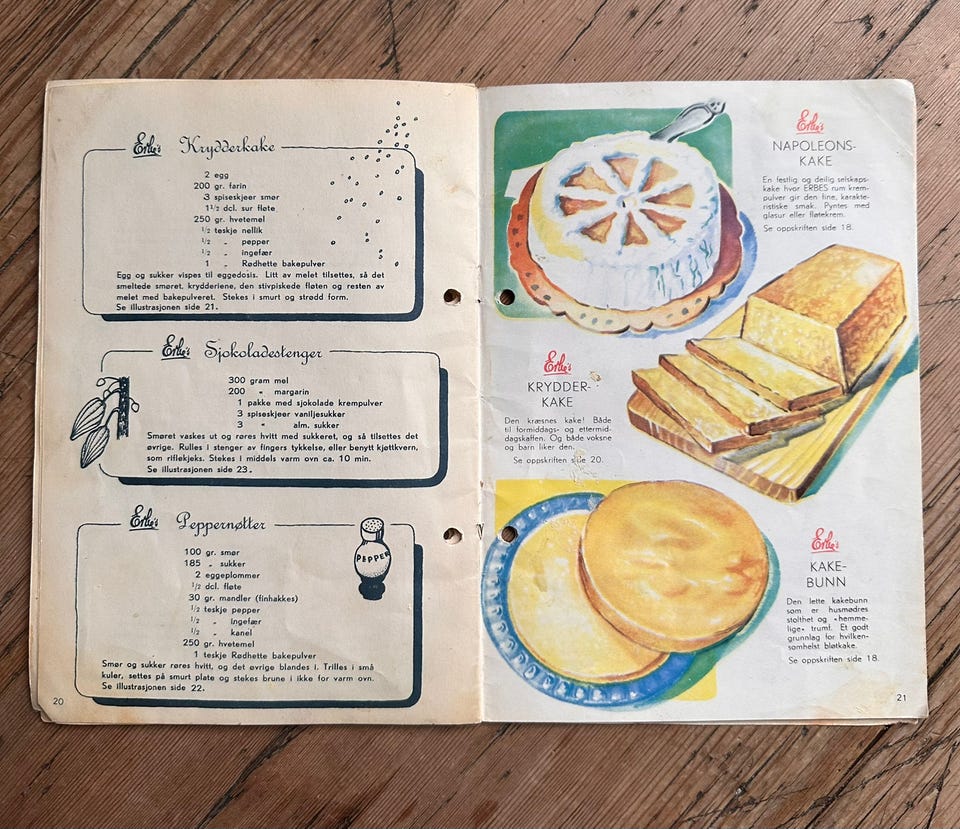 Erbe's Krydderkake
2 egg
200 gr. farin
3 spiseskjeer smør
1 1/2 dcl. sur fløte
250 gr. hvetemel
1/2 teskje nellik
1/2 „ pepper
1/2 „ ingefær
1 „ Rødhette bakepulver
Egg og sukker vispes til eggedosis. Litt av melet tilsettes, så det
smeltede smøret, krydderiene, den stivpiskede fløten og resten av
melet med bakepulveret. Stekes i smurt og strødd form.
Se illustrasjonen side 21.
Erbe's Sjokoladestenger
300 gram mel
200 „ margarin
1 pakke med sjokolade krempulver
3 spiseskjeer vaniljesukker
3 „ alm. sukker
Smøret vaskes ut og røres hvitt med sukkeret, og så tilsettes det
øvrige. Rulles i stenger av fingers tykkelse, eller benytt kjøttkvern,
som riflekjeks. Stekes i middels varm ovn ca. 10 min.
Se illustrasjonen side 23.
Erbe's Peppernøtter
PEPPER
100 gr. smør
185 „ sukker
2 eggeplommer
1/2 dcl. fløte
30 gr. mandler (finhakkes)
1/2 teskje pepper
1/2 „ ingefær
1/2 „ kanel
250 gr. hvetemel
1 teskje Rødhette bakepulver
Smør og sukker røres hvitt, og det øvrige blandes i. Trilles i små
kuler, settes på smurt plate og stekes brune i ikke for varm ovn.
Se illustrasjonen side 22.
20
Erbe's
NAPOLEONS-
KAKE
En festlig og deilig selskaps-
kake hvor ERBES rum krem-
pulver gir den fine, karakte-
ristiske smak. Pyntes med
glasur eller fløtekrem.
Se oppskriften side 18.
Erbe's
KRYDDER-
KAKE
Den kræsnes kake! Både
til formiddags- og ettermid-
dagskaffen. Og både voksne
og barn liker den.
Se oppskriften side 20.
Erbe's
KAKE-
BUNN
Den lette kakebunn
som er husmødres
stolthet og «hemme-
lige» trumf. Et godt
grunnlag for hvilken-
somhelst bløtkake.
Se oppskriften side 18.
21